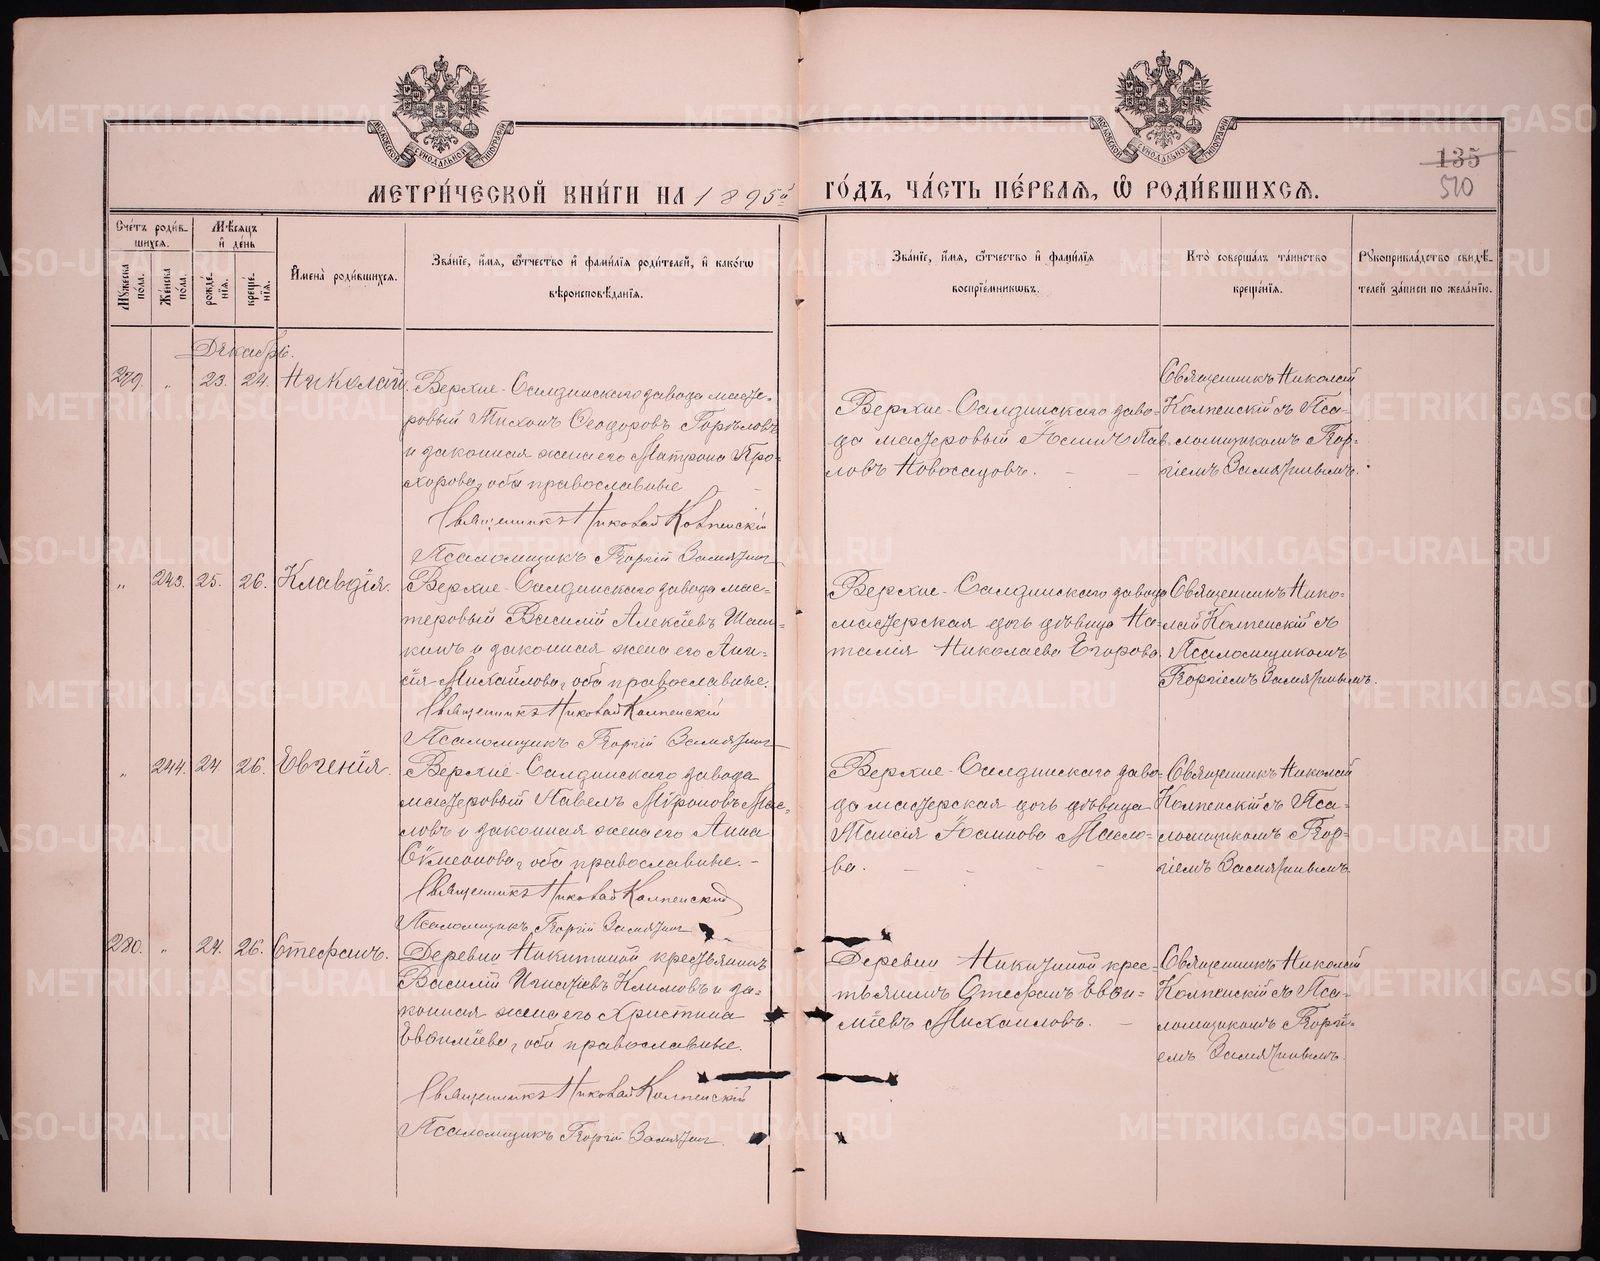 135
510
МЕТРИ́ЧЕСКОЙ КНИ́ГИ НА 1895й ГО́ДЪ, ЧА́СТЬ ПЕ́РВАЯ, Ѽ РОДИ́ВШИХСЯ.
Сче́тъ роди́в-
шихся.
Му́жеска по́ла.
Же́нска по́ла.
Мѣ́сяцъ
и҆ де́нь
рожде́-
нїя.
креще́-
нїя.
И҆мена̀ роди́вшихся.
Зва́нїе, и҆́мя, ѻ҆́тчество и҆ фами́лїя роди́телей, и҆ како́гѡ
вѣроисповѣ́данїя.
Зва́нїе, и҆́мя, ѻ҆́тчество и҆ фами́лїя
воспрїе́мникѡвъ.
Кто̀ соверша́лъ та́инство
креще́нїя.
Рꙋкоприкла́дство свидѣ́-
телей за́писи по жела́нїю.
Декабрь.
229. „ 23. 24. Николай.
Верхне-Салдинскаго завода масте-
ровый Тихонъ Ѳеодоровъ
и законная жена его Матрона Про-
хорова, оба православные
Священникъ Николай Колпенскій
Псаломщикъ Георгій Замятнинъ
Верхне-Салдинскаго заво-
да мастеровый Іоаннъ Пав-
ловъ Новосадовъ.
Священникъ Николай
Колпенскій съ Пса-
ломщикомъ Геор-
гіемъ Замятнинымъ.
„ 243. 25. 26. Клавдія.
Верхне-Салдинскаго завода мас-
теровый Василій Алексѣевъ
и законная жена его Ани-
сія Михайлова, оба православные.
Священникъ Николай Колпенскій
Псаломщикъ Георгій Замятнинъ
Верхне-Салдинскаго завода
мастерская дочь дѣвица На-
талія Николаева Егорова.
Священникъ Нико-
лай Колпенскій съ
Псаломщикомъ
Георгіемъ Замятнинымъ.
„ 244. 24. 26. Евгенія.
Верхне-Салдинскаго завода
мастеровый Павелъ Мѵроновъ Мас-
ловъ и законная жена его Анна
Сѵмеонова, оба православные.
Священникъ Николай Колпенскій
Псаломщикъ Георгій Замятнинъ
Верхне-Салдинскаго заво-
да мастерская дочь дѣвица
Таисія Іоаннова Масло-
ва.
Священникъ Николай
Колпенскій съ Пса-
ломщикомъ Геор-
гіемъ Замятнинымъ.
230. „ 24. 26. Стефанъ.
Деревни Никитиной крестьянинъ
Василій Игнатіевъ Климовъ и за-
конная жена его Христина
Евѳиміева, оба православные.
Священникъ Николай Колпенскій
Псаломщикъ Георгій Замятнинъ.
Деревни Никитиной крес-
тьянинъ Стефанъ Евѳи-
міевъ Михаиловъ.
Священникъ Николай
Колпенскій съ Пса-
ломщикомъ Георгі-
емъ Замятнинымъ.